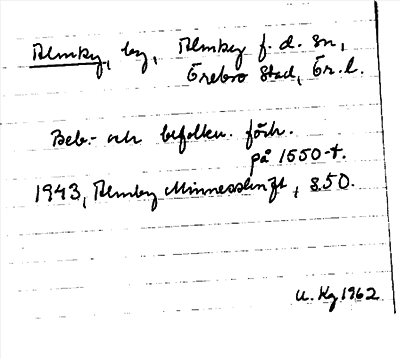 Almby, by, Almby f. d. sn,
Örebro Stad, Ör. l.
Beb.- och befolkn. förh.
på 1550-t.
1943, Almby Minnesskrift, s 50.
U. Kg 1962